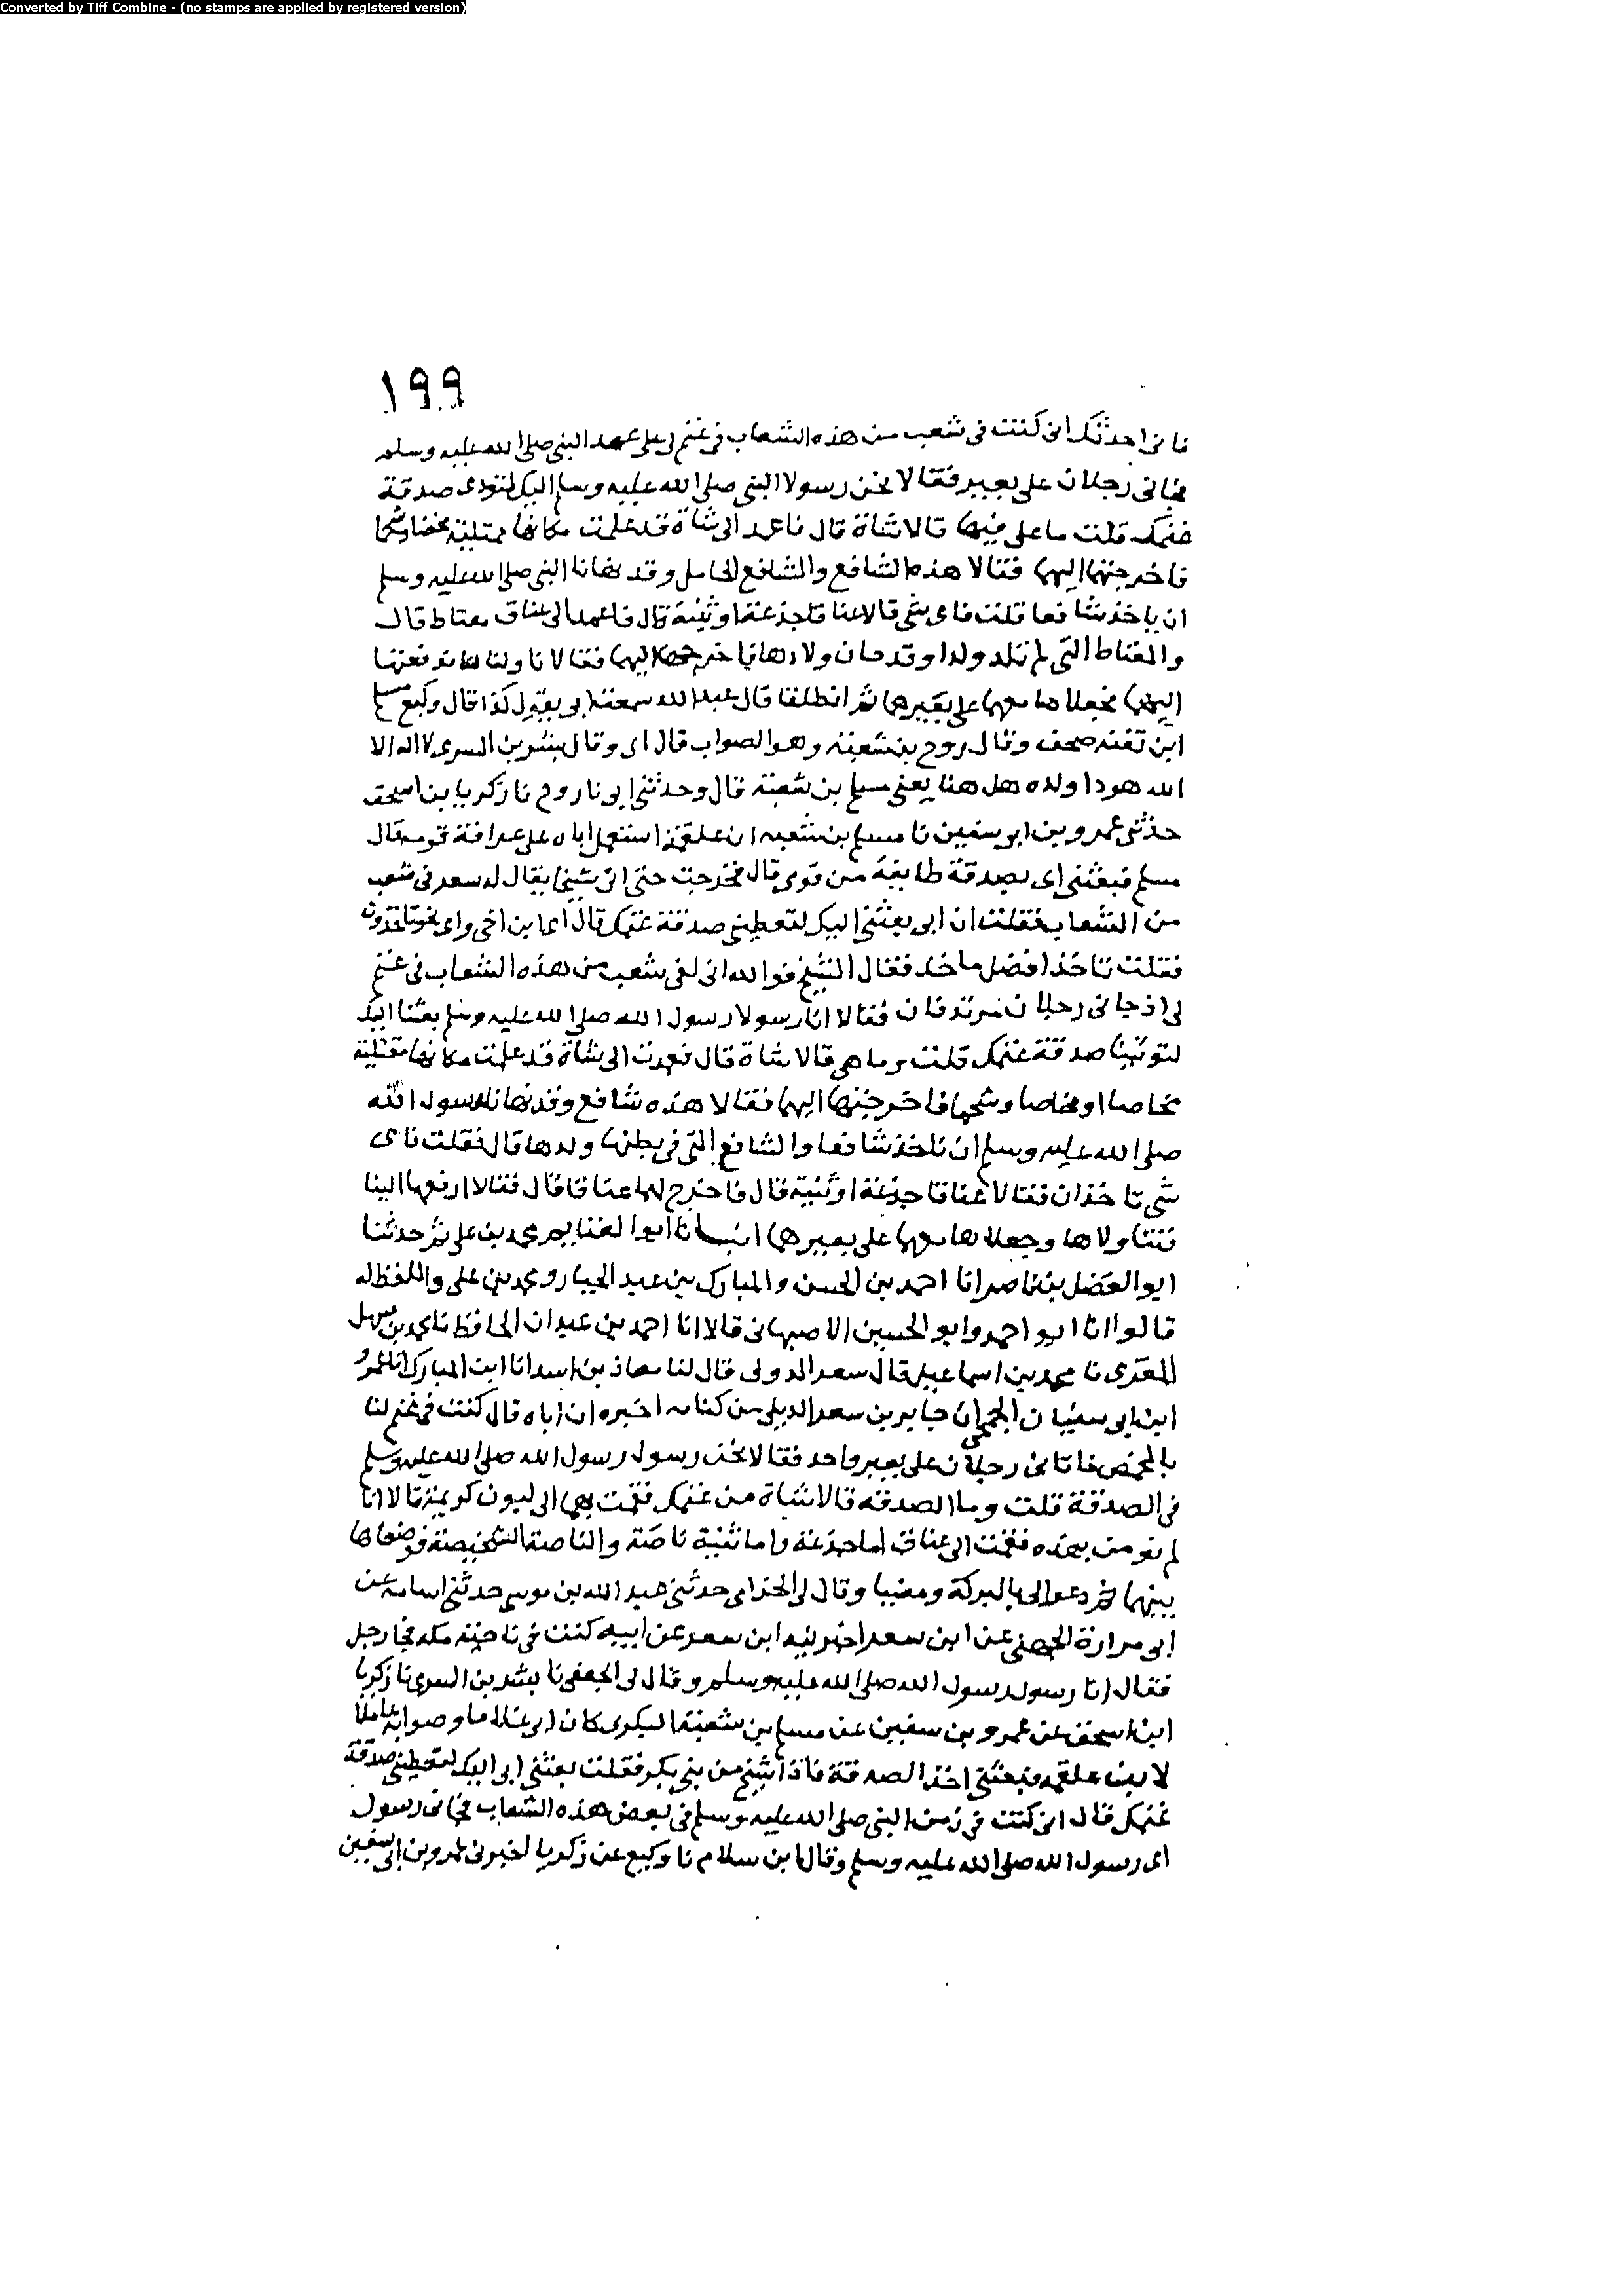 Converted by Tiff Combine - (no stamps are applied by registered version)
١٩٩
فانى احدثك انى كنت فى شعب من هذه الشعاب فى غنم لى على عهد النبى صلى الله عليه وسلم
فجانى رجلان على بعير فقالا نحن رسولا النبى صلى الله عليه وسلم اليك لتودى صدقة
غنمك قلت ما على فيها قالا شاة قال فاعمد الى شاة قد علمت مكانها ممتلية محضا وشحما
فاخرجتها اليهما فقالا هذه الشافع والشافع الحامل وقد نهانا النبى صلى الله عليه وسلم
ان ياخذ شافعا قلت فاى شى قالا عناقا جذعة او ثنية قال فاعمد الى عناق معتاط قال
والمعتاط التى لم تلد ولدا وقد حان ولادها فاخرجتها اليهما فقالا ناولناها فدفعتها
اليهما فجعلاها معهما على بعيرهما ثم انطلقا قال عبد الله سمعت ابى يقول كذا قال وكيع مسلم
ابن ثفنه صحف وقال روح بن شعبة وهو الصواب قال ابى وقال بشر بن السرى لا اله الا
الله هوذا ولده هل هنا يعنى مسلم بن شعبة قال وحدثنى ابى نا روح نا زكريا بن اسحق
حدثنى عمرو بن ابى سفين نا مسلم بن شعبه ان علقمة استعمل اباه على عرافة قومه قال
مسلم فبعثنى ابى بصدقة طايفة من قومى قال فخرجت حتى اتى شيخا يقال له سعد فى شعب
من الشعاب فقلت ان ابى بعثنى اليك لتعطينى صدقة غنمك قال اى ابن اخى واى نحو تاخذون
فقلت ناخذ افضل ما نجد فقال الشيخ فوالله انى لفى شعب من هذه الشعاب فى غنم
لى اذ جانى رجلان مرتدفان فقالا انا رسولا رسول الله صلى الله عليه وسلم بعثنا اليك
لتوتينا صدقة غنمك قلت وما هى قالا شاة قال فعمدت الى شاة قد علمت مكانها ممتلية
مخاضا او مخاضا وشحما فاخرجتها اليهما فقالا هذه شافع وقد نهانا رسول الله
صلى الله عليه وسلم ان ناخذ شافعا والشافع التى فى بطنها ولدها قال فقلت فاى
شى تاخذان فقالا عناقا جذعة او ثنية قال فاخرج لهما عناقا قال فقالا ارفعها الينا
فتناولاها وجعلاها معهما على بعيرهما انبانا ابو الغنايم محمد بن على ثم حدثنا
ابو الفضل بن ناصر انا احمد بن الحسن والمبارك بن عبد الجبار ومحمد بن على واللفظ له
قالوا انا ابو احمد وابو الحسين الاصبهانى قالا انا احمد بن عبدان الحافظ نا محمد بن سهل
المقرى نا محمد بن اسماعيل قال سعد الدولى قال لنا معاذ بن اسد انا ابن المبارك انا عمرو
ابن ابى سفيان الجمحى ان جابر بن سعد الديلى من كنانه اخبره ان اباه قال كنت فى غنم لنا
بالمخمص فاتانى رجلان على بعير واحد فقالا نحن رسول رسول الله صلى الله عليه وسلم
فى الصدقة قلت وما الصدقه قالا شاة من غنمك فقمت بهما الى لبون كريمة قالا انا
لم نومر بهذه فقمت الى عناق اما جذعة واما ثنية ناصة والناصة الشخيصة فوضعاها
بينهما ثم دعوا لى بالبركة ومضيا وقال لى الحزامى حدثنى عبيد الله بن موسى حدثنى اسامه عن
ابى مرارة الجهنى عن ابن سعد اخبرنيه ابن سعد عن ابيه كنت فى ناحية مكه فجا رجل
فقال انا رسول رسول الله صلى الله عليه وسلم وقال لى الجعفى نا بشر بن السرى نا زكريا
ابن اسحق عن عمرو بن سفين عن مسلم بن شعبة البكرى كان ابى غلاما وصوابه عاملا
لابن علقمه فبعثنى اخذ الصدقة فاذا شيخ من بنى بكر فقلت بعثنى ابى اليك لتعطينى صدقة
غنمك قال انى كنت فى زمن النبى صلى الله عليه وسلم فى بعض هذه الشعاب فجانى رسول
اى رسول الله صلى الله عليه وسلم وقال ابن سلام نا وكيع عن زكريا اخبرنى عمرو بن ابى سفين